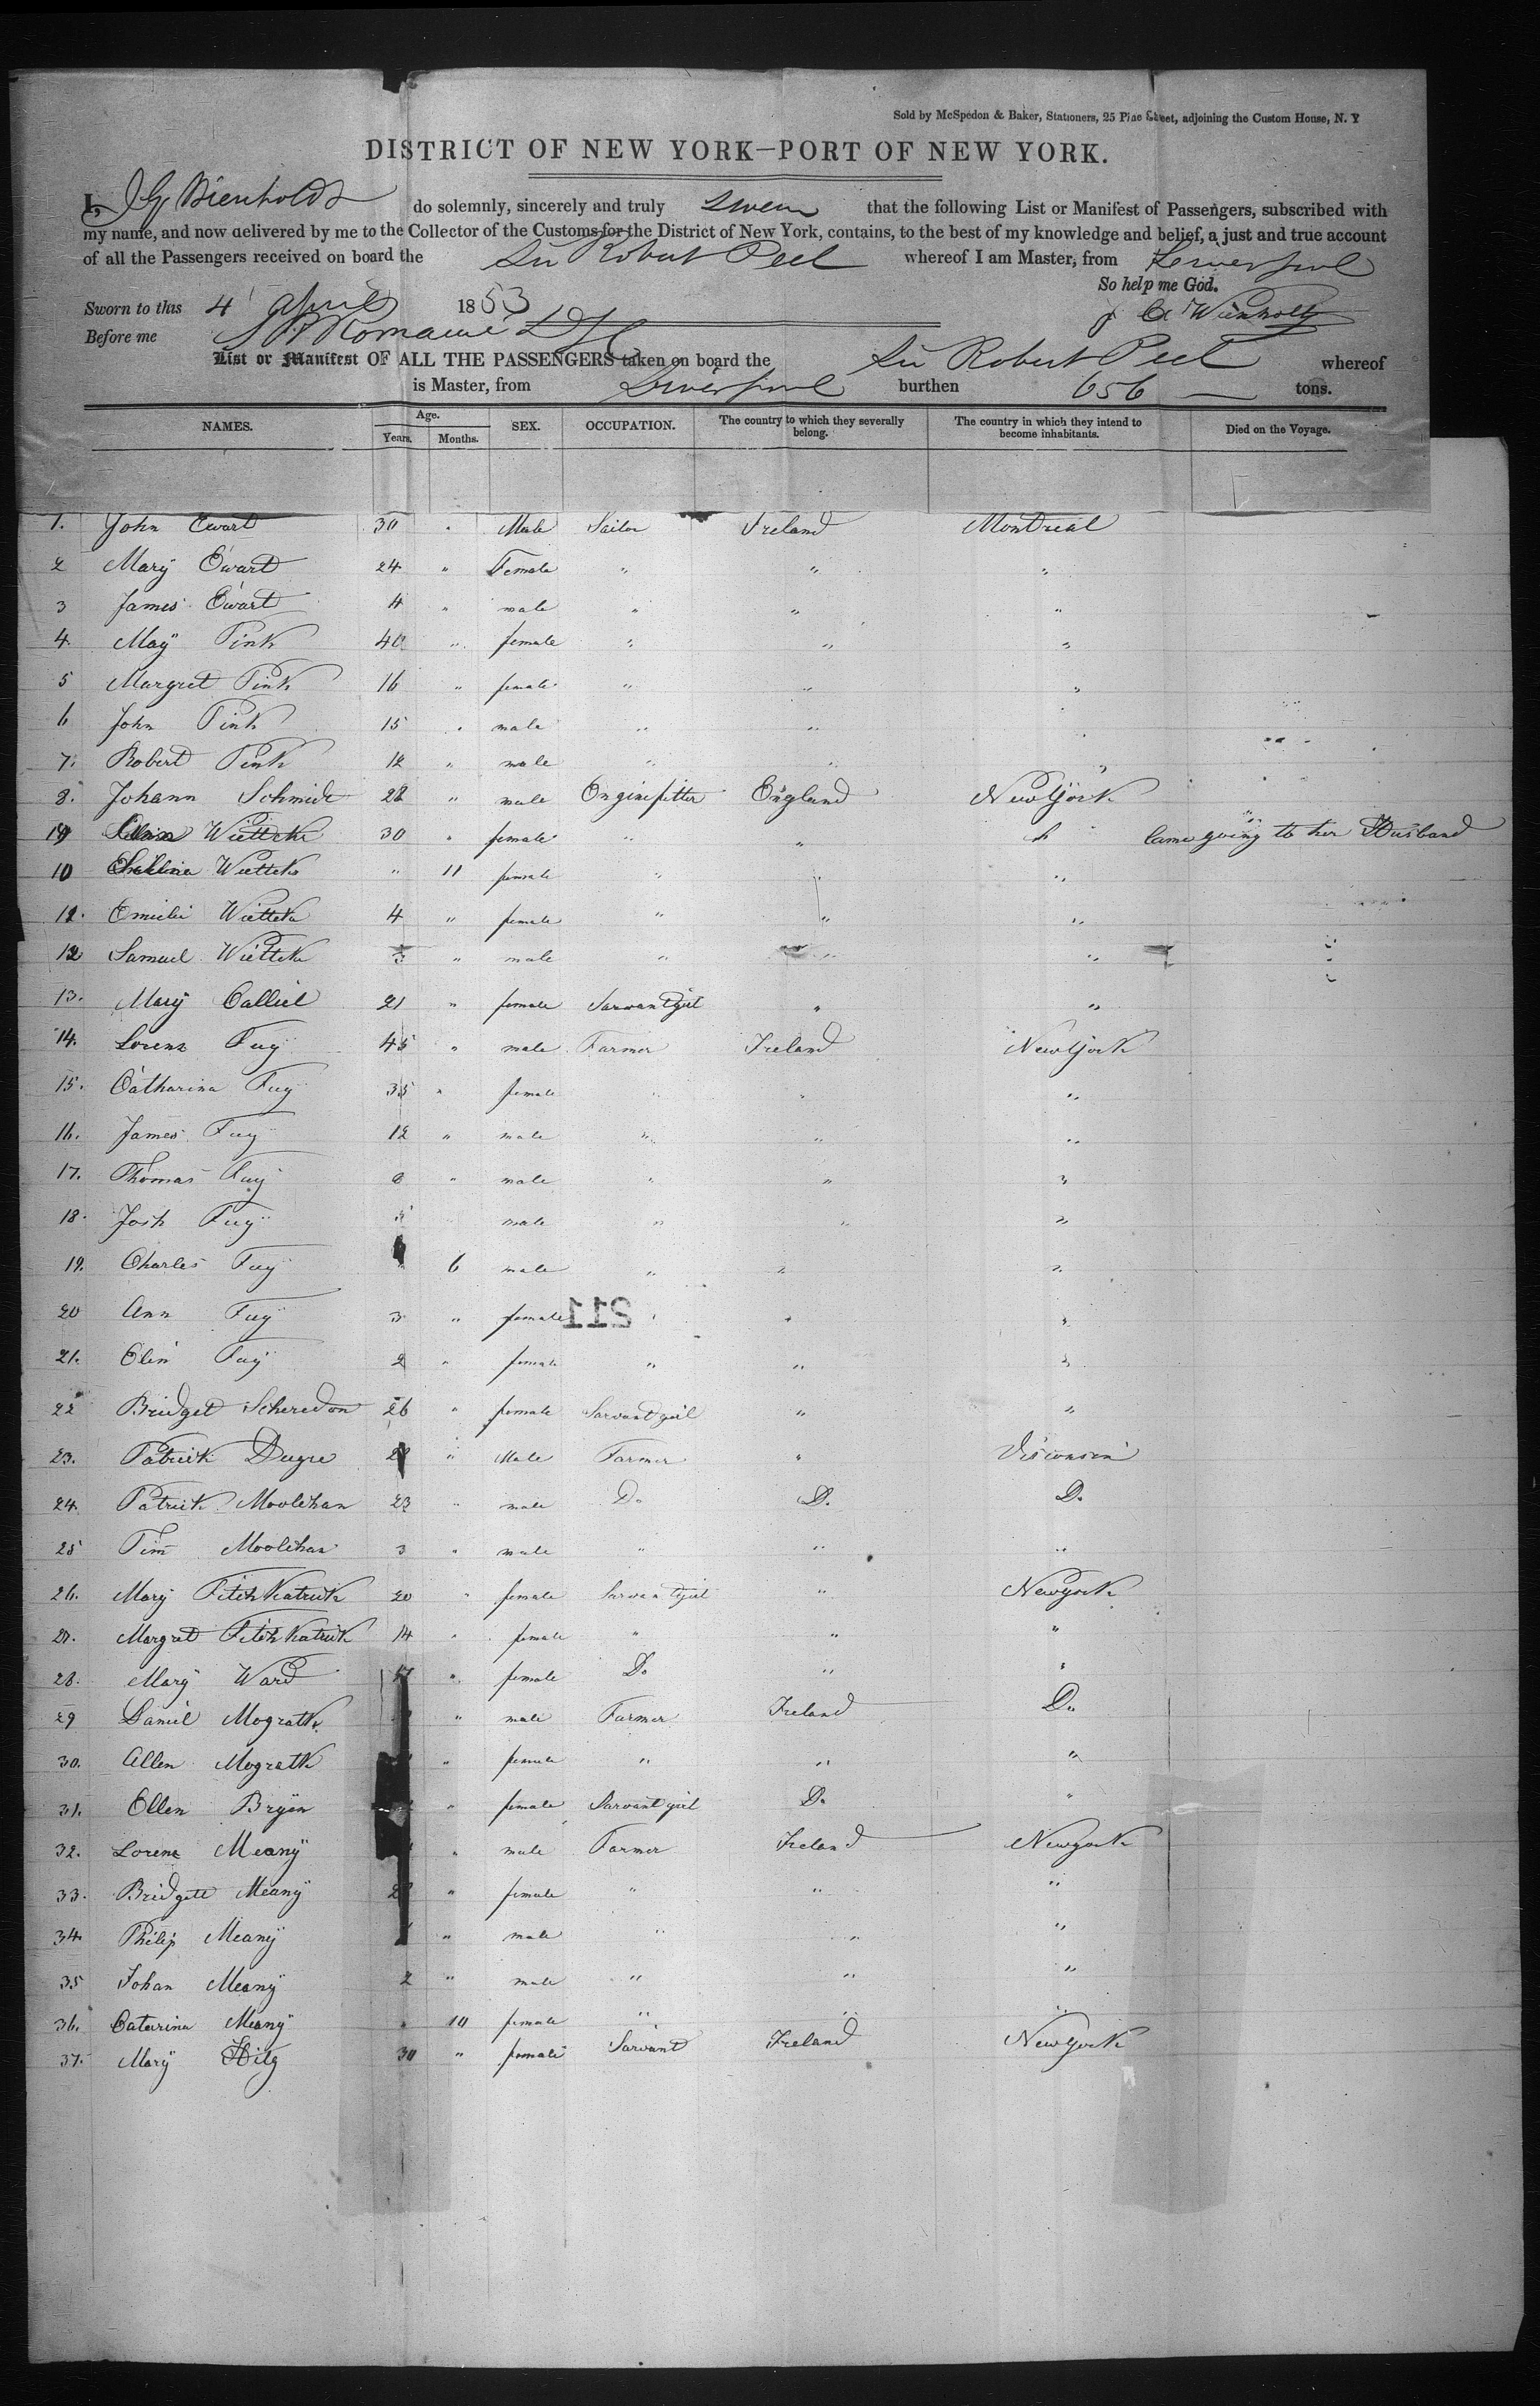 Sold by McSpedon & Baker, Stationers, 25 Pine Street, adjoining the Custom House, N. Y
DISTRICT OF NEW YORK—PORT OF NEW YORK.
I, J G Wienholdt do solemnly, sincerely and truly swear that the following List or Manifest of Passengers, subscribed with
my name, and now delivered by me to the Collector of the Customs for the District of New York, contains, to the best of my knowledge and belief, a just and true account
of all the Passengers received on board the Sir Robert Peel whereof I am Master, from Liverpool
So help me God.
Sworn to this 4 April 1853
Before me S B Romaine
List or Manifest OF ALL THE PASSENGERS taken on board the Sir Robert Peel whereof
is Master, from Liverpool burthen 656 tons.
NAMES. Age. Years. Months. SEX. OCCUPATION. The country to which they severally belong. The country in which they intend to become inhabitants. Died on the Voyage.
1. John Ewart 30 " Male Sailor Ireland Montreal
2 Mary Ewart 24 " Female " " "
3 James Ewart 4 " male " " "
4. May Pink 40 " female " " "
5 Margret Pink 16 " female " " "
6 John Pink 15 " male " "
7. Robert Pink 12 " male " " "
8. Johann Schmidt 28 " male Enginefitter England NewYork
9 Wiettcke 30 " female " " " Came going to her Husband
10 Wiettcke " 11 female " " "
11. Emielie Wiettcke 4 " female " " "
12 Samuel Wiettcke 3 " male " " "
13. Mary Calliel 21 " female Sarwantgirl " "
14. Lorenz Fuy 45 " male Farmer Ireland NewYork
15. Catharina Fuy 35 " female " " "
16. James Fuy 12 " male " " "
17. Thomas Fuy 6 " male " " "
18. Josh Fuy male " " "
19. Charles Fuy " 6 male " " "
20 Ann Fuy 3 " female " " "
211
21. Elin Fuy 2 " female " " "
22 Bridget Scheredon 26 " female Sarvantgirl " "
23. Patrick Dugre " Male Farmer " Visconsin
24. Patrick Moolihan 23 " male Do Do Do
25 Tim Moolihan 3 " male " " "
26. Mary Fitzhkatrick 20 " female Sarwantgirl " Newyork
27. Margret Fitzhkatrick 14 " female " " "
28. Mary Ward 17 " female Do " "
29 Daniel Mograth " male Farmer Ireland Do
30. Allen Mograth " female " " "
31. Ellen Bryen " female Sarvantgirl Do "
32. Lorenz Meany " male Farmer Ireland Newyork
33. Bridgett Meany " female " " "
34. Philip Meany " male " " "
35 Johan Meany 2 " male " " "
36. Catarina Meany " 10 female " " "
37. Mary Hilg 30 " female Sarvant Ireland NewYork